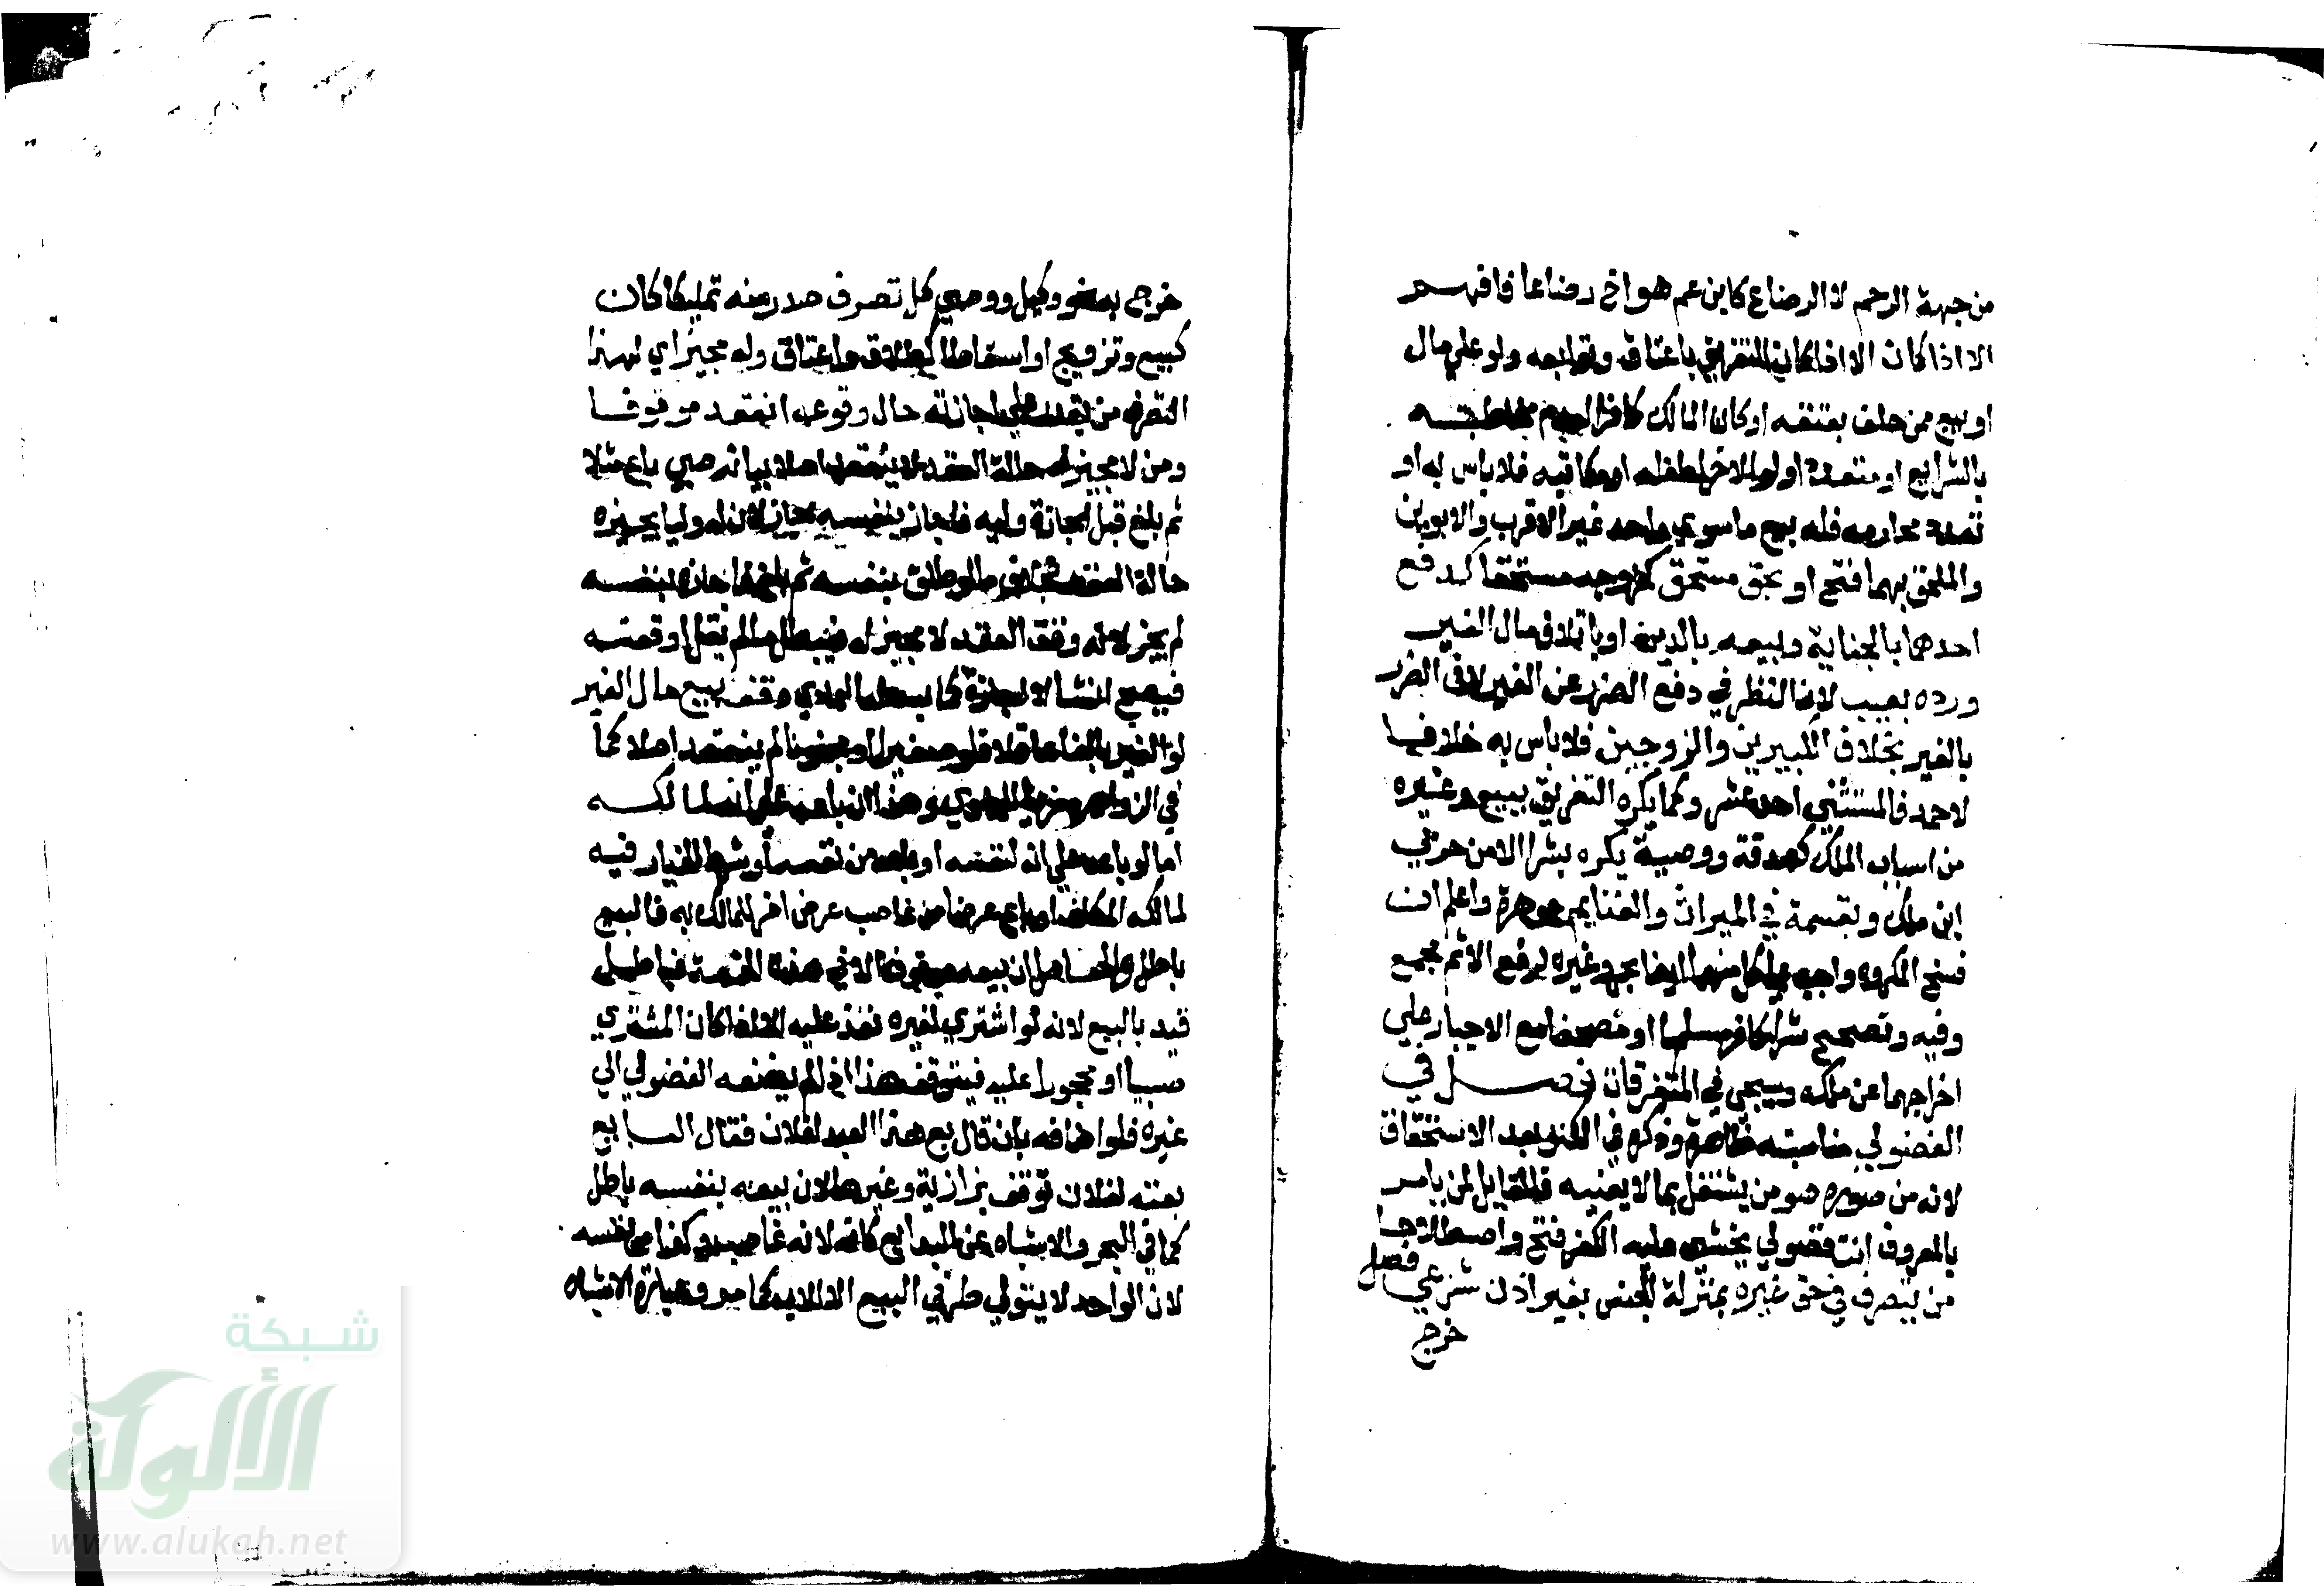 من جهة الرحم لا الرضاع كابن عم هو اخ رضاعا فافهم
الا اذا كان الا اذا كان التفريق باعتاق وتوابعه ولو علي مال
او بيع ممن حلف بعتقه او كان المالك كافرا لعدم مخاطبته
بالشرايع او متعددا ولو الاخر لطفله او مكاتبه فلا باس به او
تعدد محارمه فله بيع ما سوي واحد غير الاقرب والابوين
والملحق بهما فتح او بحق مستحق كدفع
احدهما بالجناية وبيعه بالدين او باتلاف مال الغير
ورده بعيب لان النظر في دفع الضرر عن الغير لا في الضرر
بالغير بخلاف الكبيرين والزوجين فلا باس به خلافا
لاحمد فالمستثني احد عشر وكما يكره التفريق ببيع وغيره
من اسباب الملك كصدقة ووصية يكره بشرا الا من حربي
ابن ملك وبقسمة في الميراث والغنايم جوهرة واعلم ان
فسخ المكروه واجب علي كل منهما ايضا بحر وغيره لرفع الاثم مجمع
وفيه وتصحح شرا كافر مسلما او مصحفا مع الاجبار علي
اخراجهما عن ملكه وسيجي في المتفرقات فصل في
الفضولي مناسبته ظاهرة وذكره في الكنز بعد الاستحقاق
لانه من صوره هو من يشتغل بما لا يعنيه فالقايل لمن يامر
بالمعروف انت فضولي يخشي عليه الكفر فتح واصطلاحا
من يتصرف في حق غيره بمنزلة الجنس بغير اذن شرعي فصل
خرج
خرج به نحو وكيل ووصي كل تصرف صدر منه تمليكا كان
كبيع وتزويج او اسقاطا كطلاق واعتاق وله مجيز اي لهذا
التصرف من يقدر علي اجازته حال وقوعه انعقد موقوفا
وما لا مجيز له حالة العقد لا ينعقد اصلا بيانه صبي باع مثلا
ثم بلغ قبل اجازة وليه فاجازه بنفسه جاز لان له وليا يجيزه
حالة العقد بخلاف ما لو طلق بنفسه ثم بلغ فاجازه بنفسه
لم يجز لانه وقت العقد لا مجيز له فيبطل ما لم يقل اوقعته
فيصح انشا لا اجازة كما بسطه العمادي وقف بيع مال الغير
لو الغير بالغا عاقلا فلو صغيرا او مجنونا لم ينعقد اصلا كما
في الزواهر معزيا للحاوي وهذا ان باعه علي انه لمالكه
اما لو باعه علي انه لنفسه او باعه من نفسه او شرط الخيار فيه
لمالكه المكلف او باع عرضا من غاصب عرض اخر للمالك به فالبيع
باطل والحاصل ان بيعه موقوف الا في هذه الخمسة فباطل
قيد بالبيع لانه لو اشتري لغيره نفذ عليه الا اذا كان المشتري
صبيا او محجورا عليه فيتوقف هذا اذا لم يضفه الفضولي الي
غيره فلو اضافه بان قال بع هذا العبد لفلان فقال البايع
بعته لفلان توقف بزازية وغيرها لان بيعه بنفسه باطل
كما في البحر والاشباه عن البدايع كانه لانه غاصب وكذا من نفسه
لان الواحد لا يتولي طرفي البيع الا الاب كما مر وعبارة الاشباه